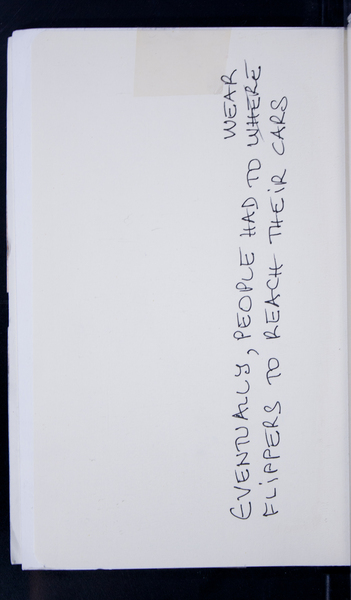 WEAR
EVENTUALLY, PEOPLE HAD TO WHERE
FLIPPERS TO REACH THEIR CARS